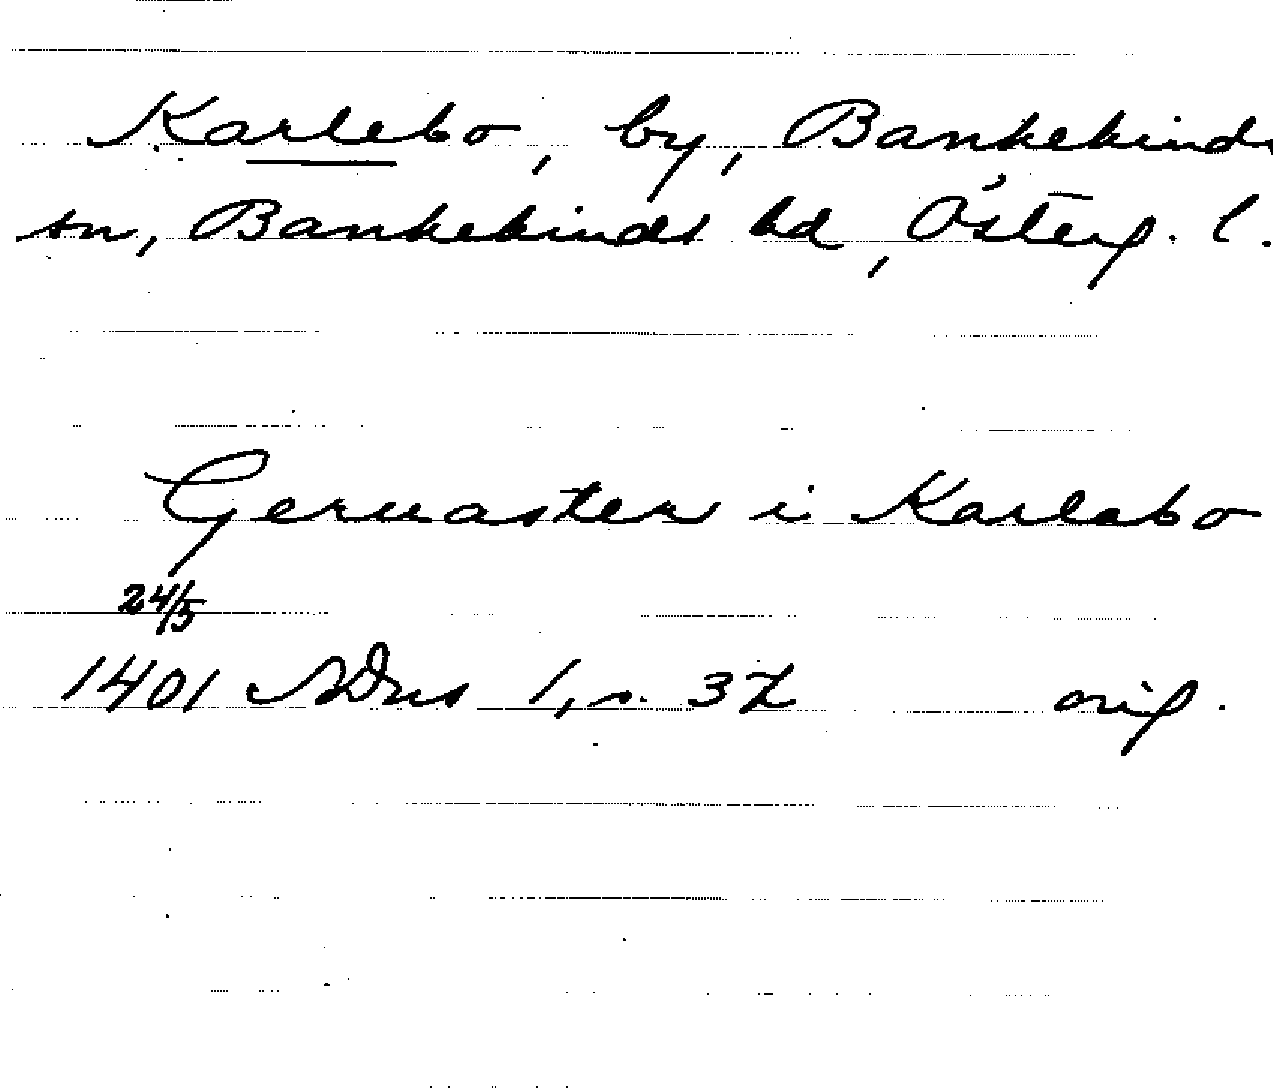 Karlebo, by, Bankekinds
sn, Bankekinds hd, Österg. l.
Geruaster i Karlabo
24/5
1401 SDns 1, s. 32 orig.